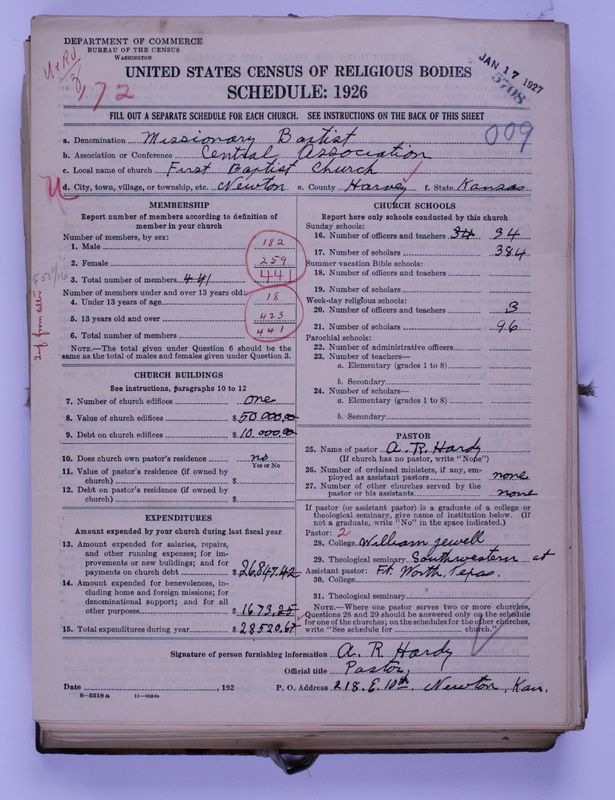 DEPARTMENT OF COMMERCE
BUREAU OF THE CENSUS
WASHINGTON
JAN 17 1927
5708
172
UNITED STATES CENSUS OF RELIGIOUS BODIES
SCHEDULE: 1926
FILL OUT A SEPARATE SCHEDULE FOR EACH CHURCH. SEE INSTRUCTIONS ON THE BACK OF THIS SHEET
009
a. Denomination Missionary Baptist
b. Association or Conference Central Association
c. Local name of church First Baptist Church
d. City, town, village, or township, etc. Newton e. County Harvey f. State Kansas
MEMBERSHIP
Report number of members according to definition of
member in your church
Number of members, by sex:
1. Male 182
2. Female 259
3. Total number of members 441 441
Number of members under and over 13 years old:
4. Under 13 years of age 18
5. 13 years old and over 423
6. Total number of members 441
NOTE.—The total given under Question 6 should be the
same as the total of males and females given under Question 3.
CHURCH BUILDINGS
See instructions, paragraphs 10 to 12
7. Number of church edifices one
8. Value of church edifices $50000.00
9. Debt on church edifices $10.000.00
10. Does church own pastor's residence? no
Yes or No
11. Value of pastor's residence (if owned by
church) $
12. Debt on pastor's residence (if owned by
church) $
EXPENDITURES
Amount expended by your church during last fiscal year
13. Amount expended for salaries, repairs,
and other running expenses; for im-
provements or new buildings; and for
payments on church debt $26,847.42
14. Amount expended for benevolences, in-
cluding home and foreign missions; for
denominational support; and for all
other purposes $1673.25
15. Total expenditures during year $28520.67
CHURCH SCHOOLS
Report here only schools conducted by this church
Sunday schools:
16. Number of officers and teachers 34 34
17. Number of scholars 384
Summer vacation Bible schools:
18. Number of officers and teachers
19. Number of scholars
Week-day religious schools:
20. Number of officers and teachers 3
21. Number of scholars 96
Parochial schools:
22. Number of administrative officers
23. Number of teachers—
a. Elementary (grades 1 to 8)
b. Secondary
24. Number of scholars—
a. Elementary (grades 1 to 8)
b. Secondary
PASTOR
25. Name of pastor A. R. Hardy
(If church has no pastor, write "None")
26. Number of ordained ministers, if any, em-
ployed as assistant pastors none
27. Number of other churches served by the
pastor or his assistants none
If pastor (or assistant pastor) is a graduate of a college or
theological seminary, give name of institution below. (If
not a graduate, write "No" in the space indicated.)
Pastor: 2
28. College William Jewell
29. Theological seminary Southwestern at
Assistant pastor: Ft. Worth, Texas.
30. College
31. Theological seminary
NOTE.—Where one pastor serves two or more churches,
Questions 28 and 29 should be answered only on the schedule
for one of the churches; on the schedules for the other churches,
write "See schedule for church."
Signature of person furnishing information A. R. Hardy
Official title Pastor,
Date , 192 P. O. Address 218. E. 10th. Newton, Kan.
8—5518 a